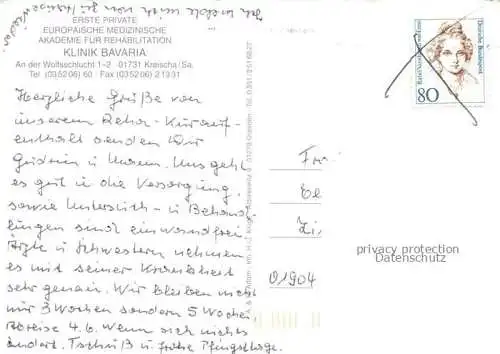 Ich melde mich von zu Hause wieder.
ERSTE PRIVATE
EUROPÄISCHE MEDIZINISCHE
AKADEMIE FÜR REHABILITATION
KLINIK BAVARIA
An der Wolfsschlucht 1–2 · 01731 Kreischa/Sa.
Tel (035206) 60 · Fax (035206) 21331
Herzliche Grüße von
unserem Reha-Kurauf-
enthalt senden Dir
Gudrun u. Uns geht
es gut in die Versorgung,
sowie Unterkich- u. Behand-
lungen sind einwandfrei
Ärzte u. Schwestern nehmen
es mit seiner Krankheit
sehr genau. Wir bleiben nicht
nur 3 Wochen sondern 5 Wochen,
Abreise 4.6. Wenn sich nichts
ändert. Tschüß u. frohe Pfingsttage.
01279 Dresden
Deutsche Bundespost
80
Fr
Ee
Zi
01904
privacy protection
Datenschutz